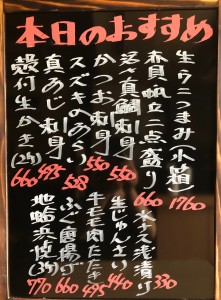 本日のおすすめ
生ウニつまみ(小箱) 1760
赤貝帆立二点盛り 660
活〆真鯛刺身 550
かつお刺身 550
スズキのあらい 528
真あじ刺身 495
殻付生かき(2ヶ) 660
水ナス浅漬け 330
生じゅんさい 440
牛モモ肉たたき 495
ふぐ唐揚げ 660
地蛤浜焼(3ヶ) 770